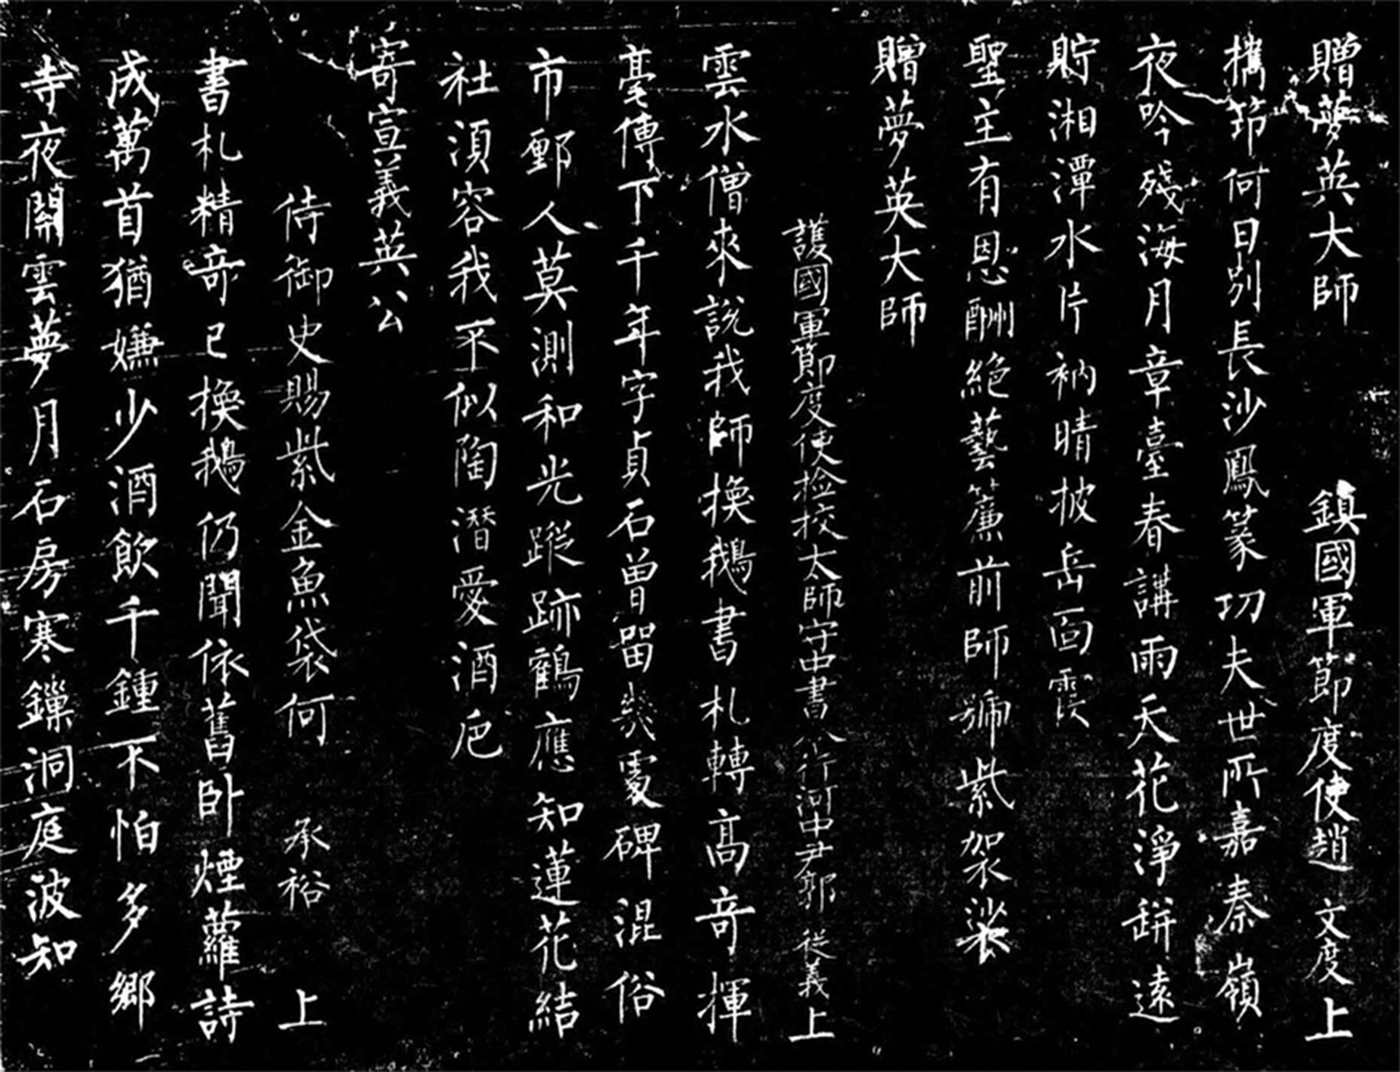 贈夢英大師　鎮國軍節度使趙　文度上
攜筇何日別長沙鳳篆功夫世所嘉秦嶺
夜吟殘海月章臺春講雨天花淨缾遠
貯湘潭水片衲晴披岳面霞
聖主有恩酬絕藝簾前師號紫袈裟
贈夢英大師
護國軍節度使檢校太師守中書令行河中尹郭　從義上
雲水僧來說我師換鵝書札轉高奇揮
毫傳下千年字貞石曾留幾處碑混俗
市鄽人莫測和光蹤跡鶴應知蓮花結
社須容我不似陶潛愛酒卮
寄宣義英公
侍御史賜紫金魚袋何　承裕　上
書札精奇已換鵝仍聞依舊臥煙蘿詩
成萬首猶嫌少酒飲千鍾不怕多鄉
寺夜關雲夢月石房寒鏁洞庭波知